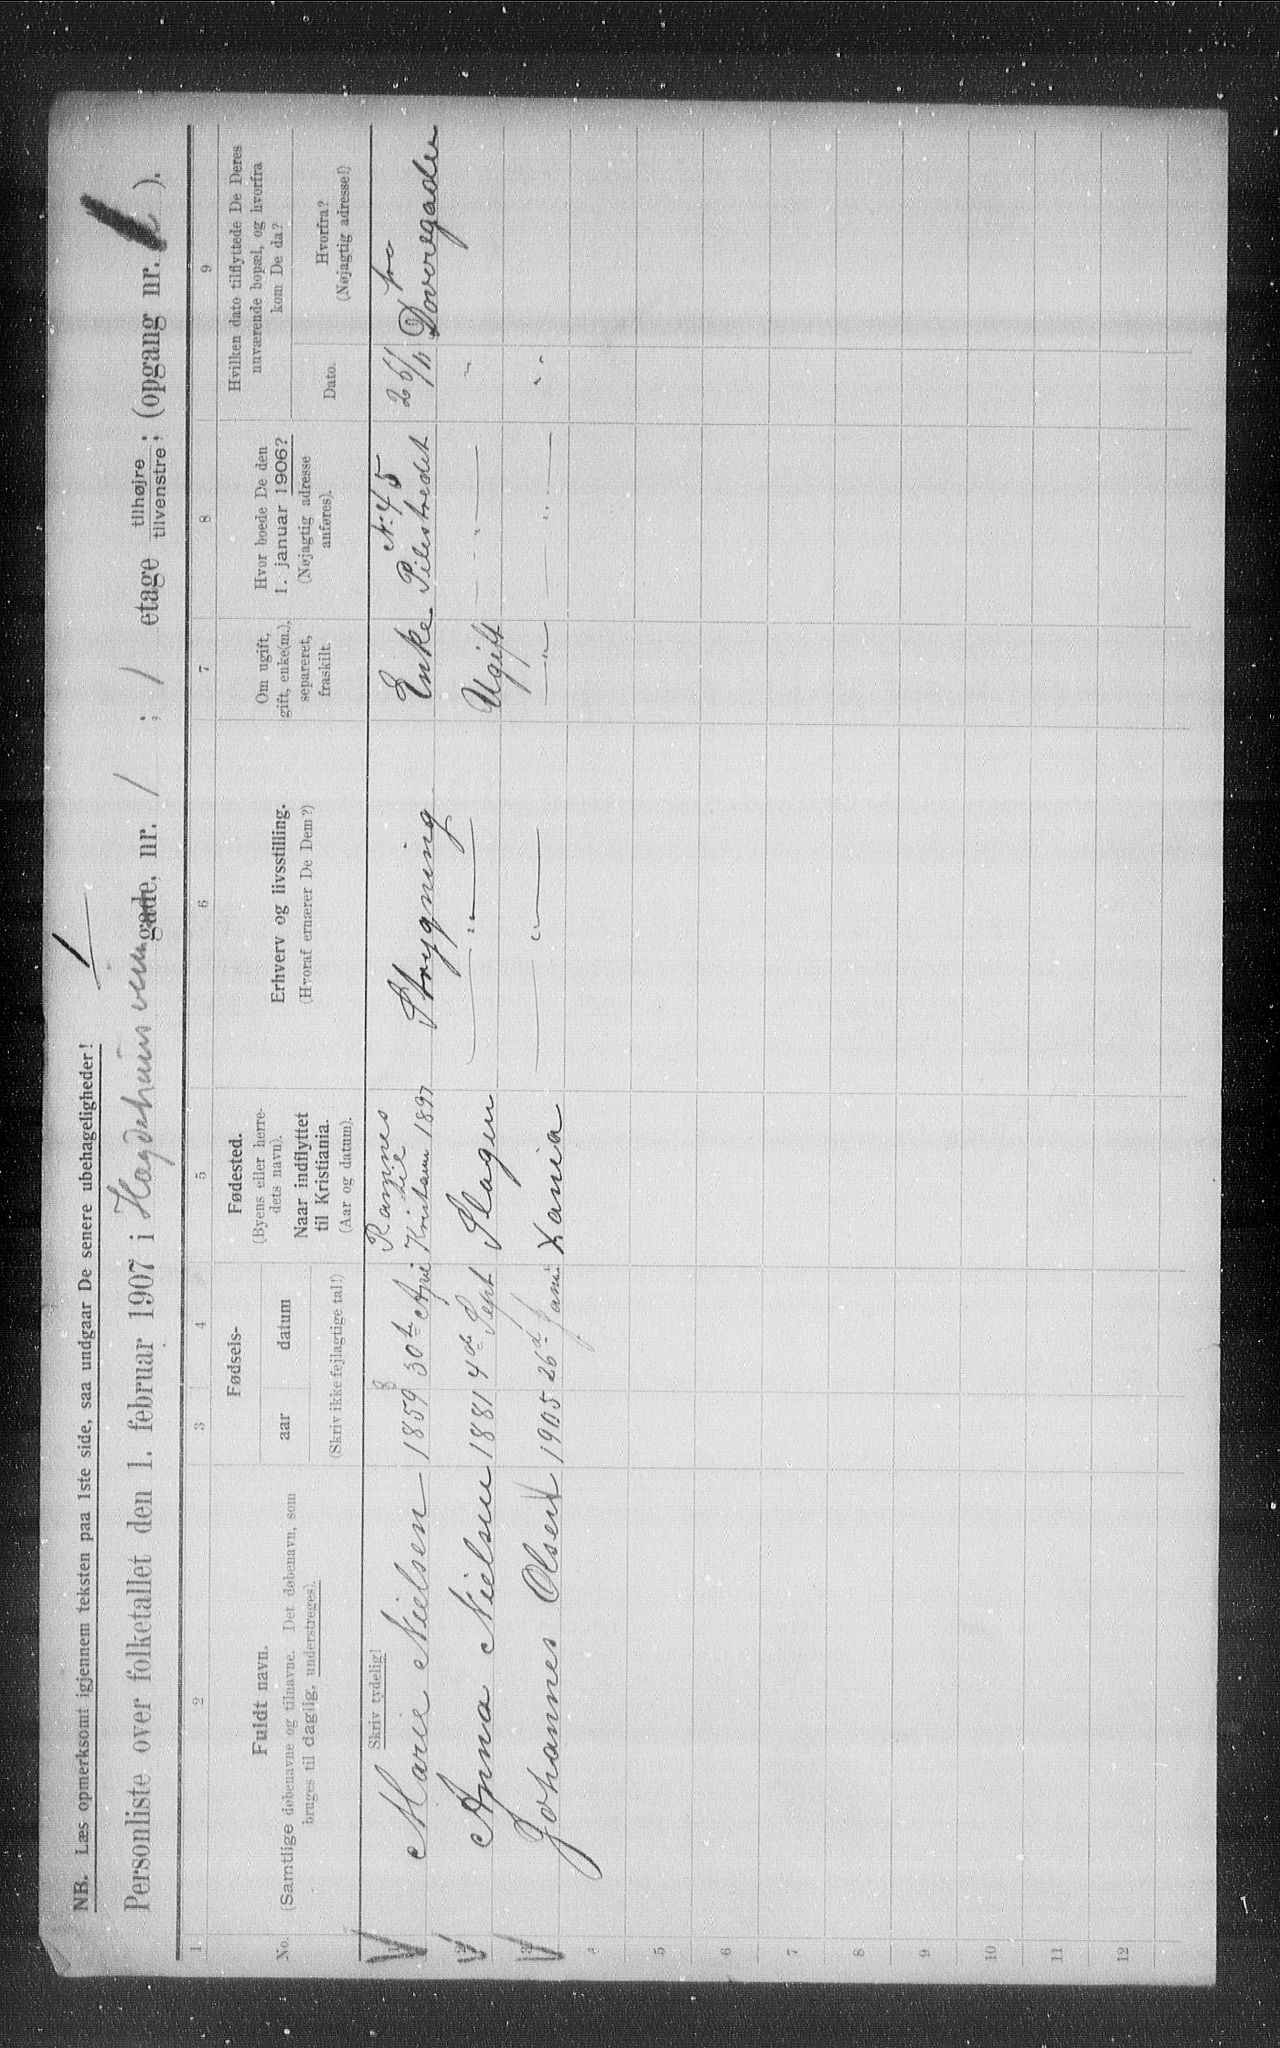 NB. Læs opmerksomt igjennem teksten paa 1ste side, saa undgaar De senere ubehageligheder!
Personliste over folketallet den 1. februar 1907 i gade, nr. 1 ; 1 etage tilhøjre tilvenstre; (opgang nr. ).
1 2 3 4 5 6 7 8 9
No.
Fuldt navn.
(Samtlige døbenavne og tilnavne. Det døbenavn, som
bruges til daglig, understreges).
Fødsels-
aar datum
(Skriv ikke fejlagtige tal!)
Fødested.
(Byens eller herre-
dets navn).
Naar indflyttet
til Kristiania.
(Aar og datum).
Erhverv og livsstilling.
(Hvoraf ernærer De Dem?)
Om ugift,
gift, enke(m.),
separeret,
fraskilt.
Hvor boede De den
1. januar 1906?
(Nøjagtig adresse
anføres).
Hvilken dato tilflyttede De Deres
nuværende bopæl, og hvorfra
kom De da?
Dato.
Hvorfra?
(Nøjagtig adresse!)
Skriv tydelig!
Marie Nielsen 1859 30te Apri Ramnes 1897 Strygning Enke No 45 Pilestredet 26/11 fra Dovregaden
2 Anna Nielsen 1881 4de Sept Slagen — " — Ugift — " — "
3 Johannes Olsen 1905 26de Janu Xania — " — — " — — " — "
4
5
6
7
8
9
10
11
12